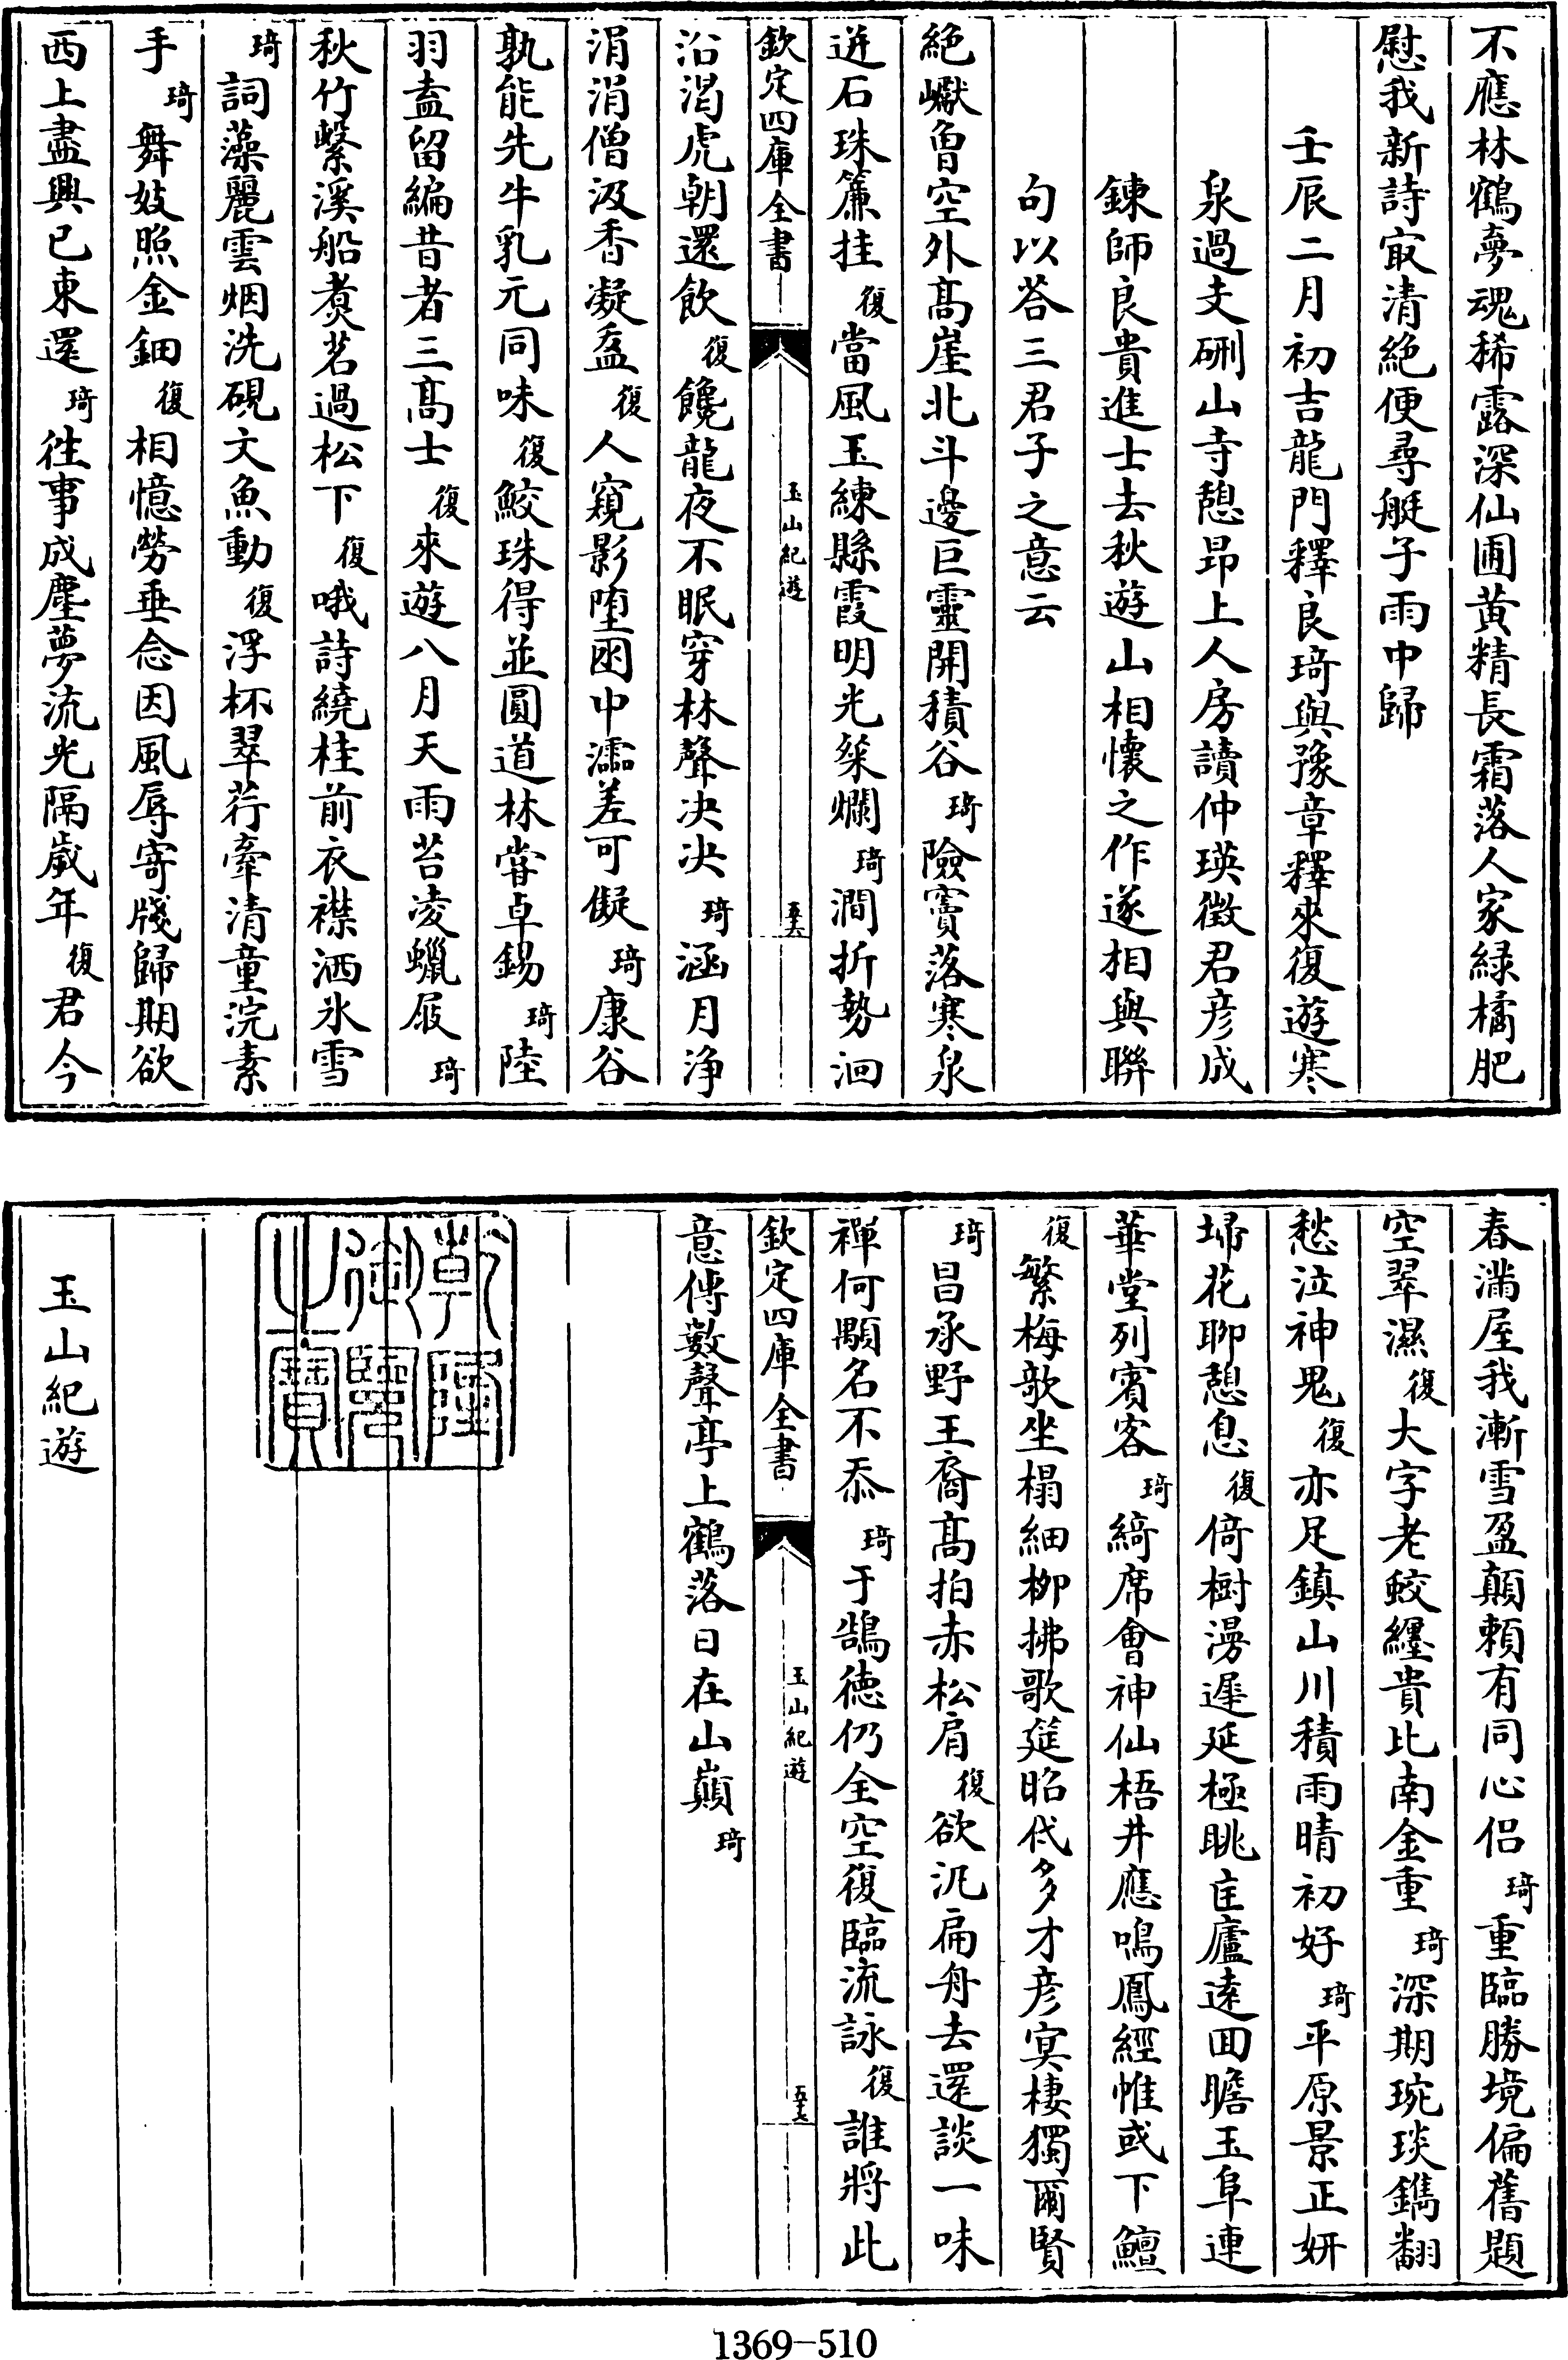 不應林鶴夢魂稀露深仙圃黄精長霜落人家緑橘肥
慰我新詩㝡清絶便尋艇子雨中歸
壬辰二月初吉龍門釋良琦與豫章釋來復遊寒
泉過支硎山寺憩昂上人房讀仲瑛徴君彦成
錬師良貴進士去秋遊山相懐之作遂相與聯
句以荅三君子之意云
絶巘曾空外髙崖北斗邊巨靈開積谷琦險竇落寒泉
迸石珠簾挂復當風玉練縣霞明光粲爛琦澗折勢洄
欽定四庫全書
玉山紀遊
五十六
沿渇虎朝還飲復饞龍夜不眠穿林聲决决琦涵月净
涓涓僧汲香凝盋復人窺影堕囦中濡差可儗琦康谷
孰能先牛乳元同味復鮫珠得並圓道林甞卓錫琦陸
羽盍留編昔者三髙士復來遊八月天雨苔凌蠟屐琦
秋竹繫溪船煑茗過松下復哦詩繞桂前衣襟洒氷雪
琦詞藻麗雲烟洗硯文魚動復浮杯翠荇牽清童浣素
手琦舞妓照金鈿復相憶勞垂念因風辱寄牋歸期欲
西上盡興已東還琦徃事成塵夢流光隔歲年復君今
春滿屋我漸雪盈顛頼有同心侣琦重臨勝境偏舊題
空翠濕復大字老蛟纒貴比南金重琦深期琬琰鐫翻
愁泣神鬼復亦足鎮山川積雨晴初好琦平原景正妍
埽花聊憩息復倚樹漫遲延極眺匡廬逺囬瞻玉阜連
華堂列賓客琦綺席會神仙梧井應鳴鳳經帷或下鱣
復繁梅歌坐榻細栁拂歌筵昭代多才彦㝠棲獨爾賢
琦昌承野王裔髙拍赤松肩復欲汎扁舟去還談一味
禪何顒名不忝琦于鵠徳仍全空復臨流詠復誰將此
欽定四庫全書
玉山紀遊
五十七
意傳數聲亭上鶴落日在山巔琦
乾隆御覽之寶
玉山紀遊
1369-510